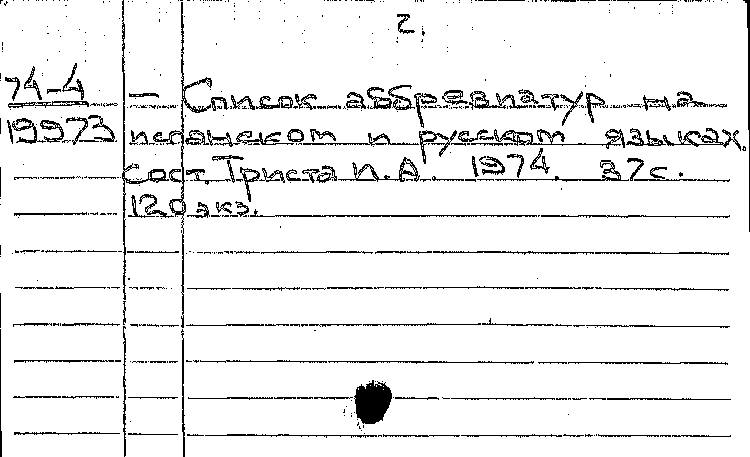 2.
74-4 — Список аббревиатур на
19973 испанском и русском языках.
сост. Триста И.А. 1974. 37с.
120 экз.